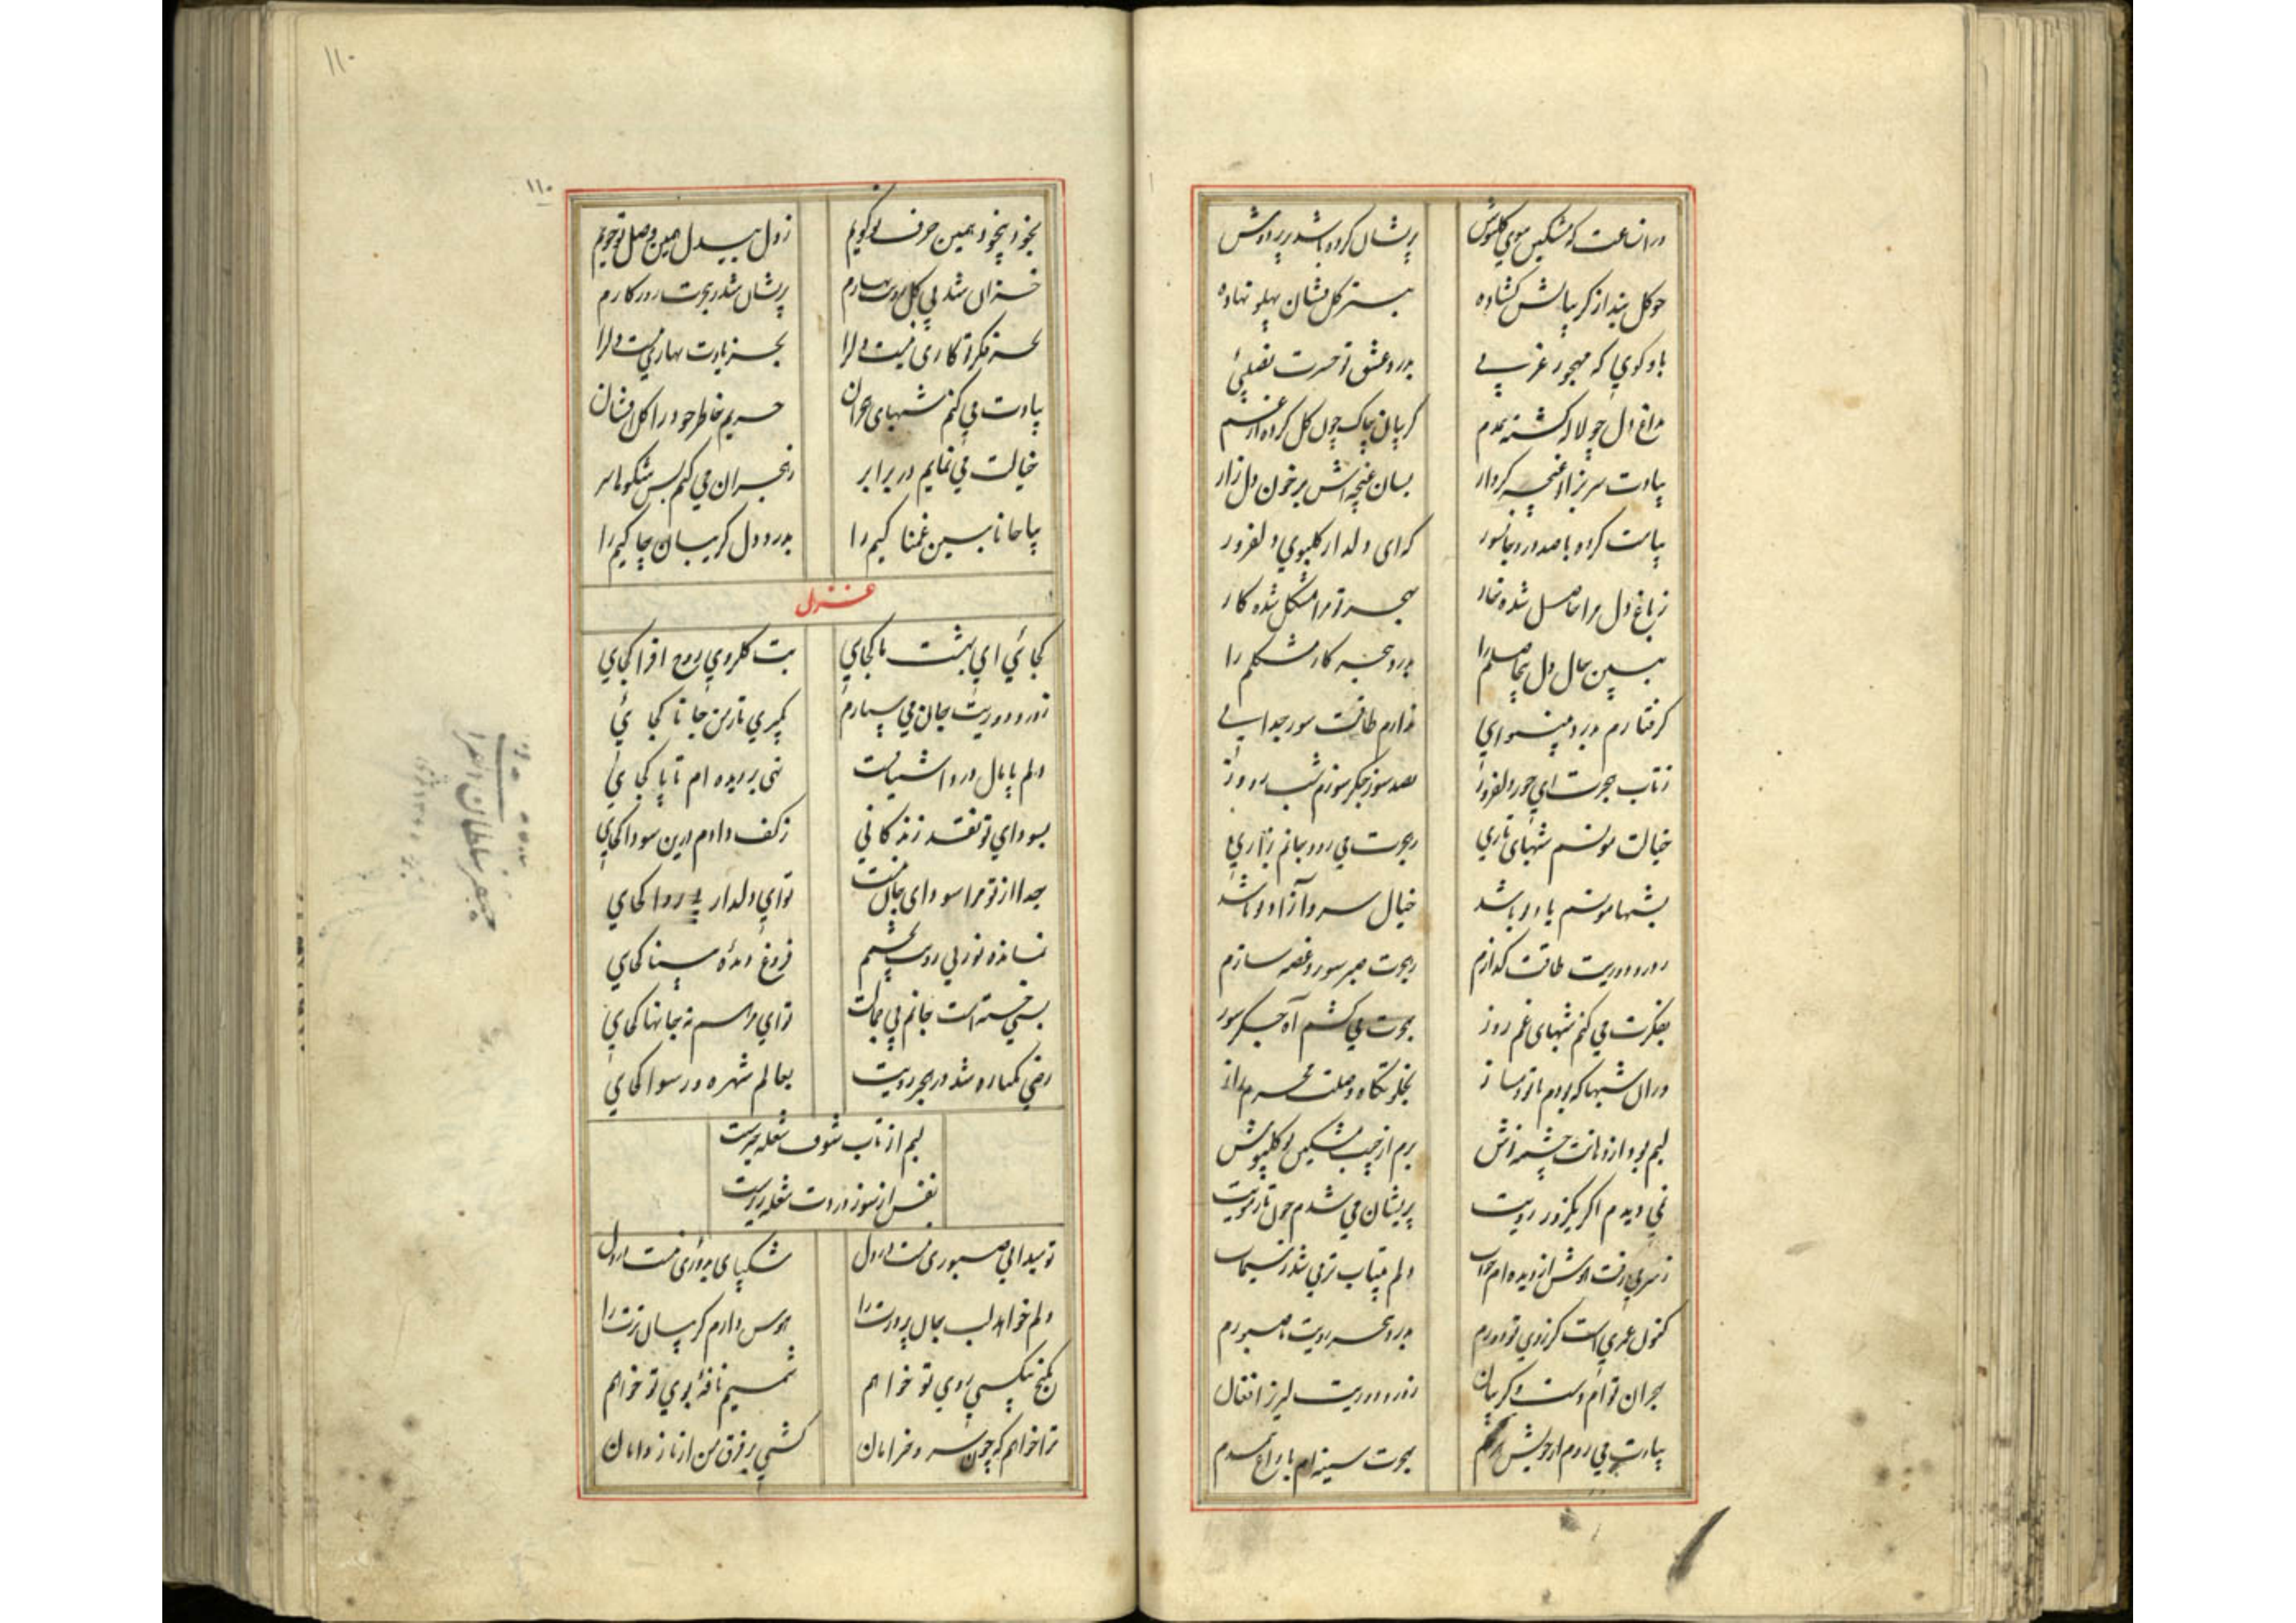 در انساعت که مشکین موی کلپوش پریشان کرده باشد بر بر دوش
چو کل بند از کریبانش کشاده ببستر کل فشان پهلو نهاده
باو کوی که مهجور غریبی بدرد عشق تو حسرت نصیبی
بداغ دل چو لاله کشته همدم کریبان چاک چون کل کرده از غم
بیادت سر بزانو غنچه کردار بسان غنچه اش پر خون دل زار
پیامت کرده با صد درد جانسوز که ای دلدار کلبوی دلفروز
ز باغ دل مرا حاصل شده خار بهجر تو مرا مشکل شده کار
ببین حال دل بیحاصلم را بدرد هجر کار مشکلم را
کرفتارم بدرد بینوایی ندارم طاقت سوز جدایی
ز تاب هجرت ای حور دلفروز بصد سوز جکر سوزم شب و روز
خیالت مونسم شبهای تاری بهجرت می رود جانم بزاری
بشبها مونسم یاد تو باشد خیال سرو آزاد تو باشد
ز درد دوریت طاقت کدازم بهجرت صبر سوز و غصه سازم
بفکرت می کنم شبهای غم روز بهجرت می کشم آه جکر سوز
در ان شبها که بودم با تو دمساز بخلوتکاه وصلت محرم راز
لبم بود از دهانت چشمه نوش برم از جیب مشکین تو کلپوش
نمی دیدم اکر یکروز رویت پریشان می شدم چون تار مویت
دلم بیتاب تر می شد ز سیماب
کنون عمری است کز روی تو دورم بدرد هجر رویت ناصبورم
بهجران توام دست و کریبان ز درد دوریت لبریز افغان
بیادت می روم از خویش هر دم بهجرت سینه ام با داغ همدم
۱۱۰
۱۱۰
بخود بیخود همین حرف تو کویم ز دل بیدل همین وصل تو جویم
خزان شد بی کل رویت بهارم پریشان شد بهجرت روزکارم
بجز فکر تو کاری نیست دلرا بجز یادت بهاری نیست دلرا
بیادت می کنم شبهای هجران حریم خاطر خود را کل افشان
خیالت می نمایم در برابر ز هجران می کنم بس شکوها سر
بیا جانا ببین غمناکیم را بدرد دل کریبان چاکیم را
غزل
کجائی ای بت ما کجای بت کلروی روح افزا کجای
ز درد دوریت جان می سپارم کجا ئی
دلم پامال درد اشتیاقت کجای
بسودای تو نقد زندکانی ز کف دادم درین سودا کجای
جدا از تو مرا سودای جانست تو ای دلدار بی پروا کجای
نمانده نور بی رویت بچشم فروغ دیدۀ بینا کجای
بسی خسته است جانم بی جمالت تو ای مرهم نه جانها کجای
رضی یکباره شد در هجر رویت بعالم شهره و رسوا کجای
لبم از تاب شوقت شعله خیزست
نفس از سوز دردت شعله ریزست
شکیبای بروزی نیست در دل
دلم خواهد لب جان پرورت را هوس دارم کریبان ترت را
بکنج بیکسی روی تو خواهم شمیم نافۀ بوی تو خواهم
ترا خواهم که چون سرو خرامان کشی بر فرق من از ناز دامان
جعفر سلطان القرا